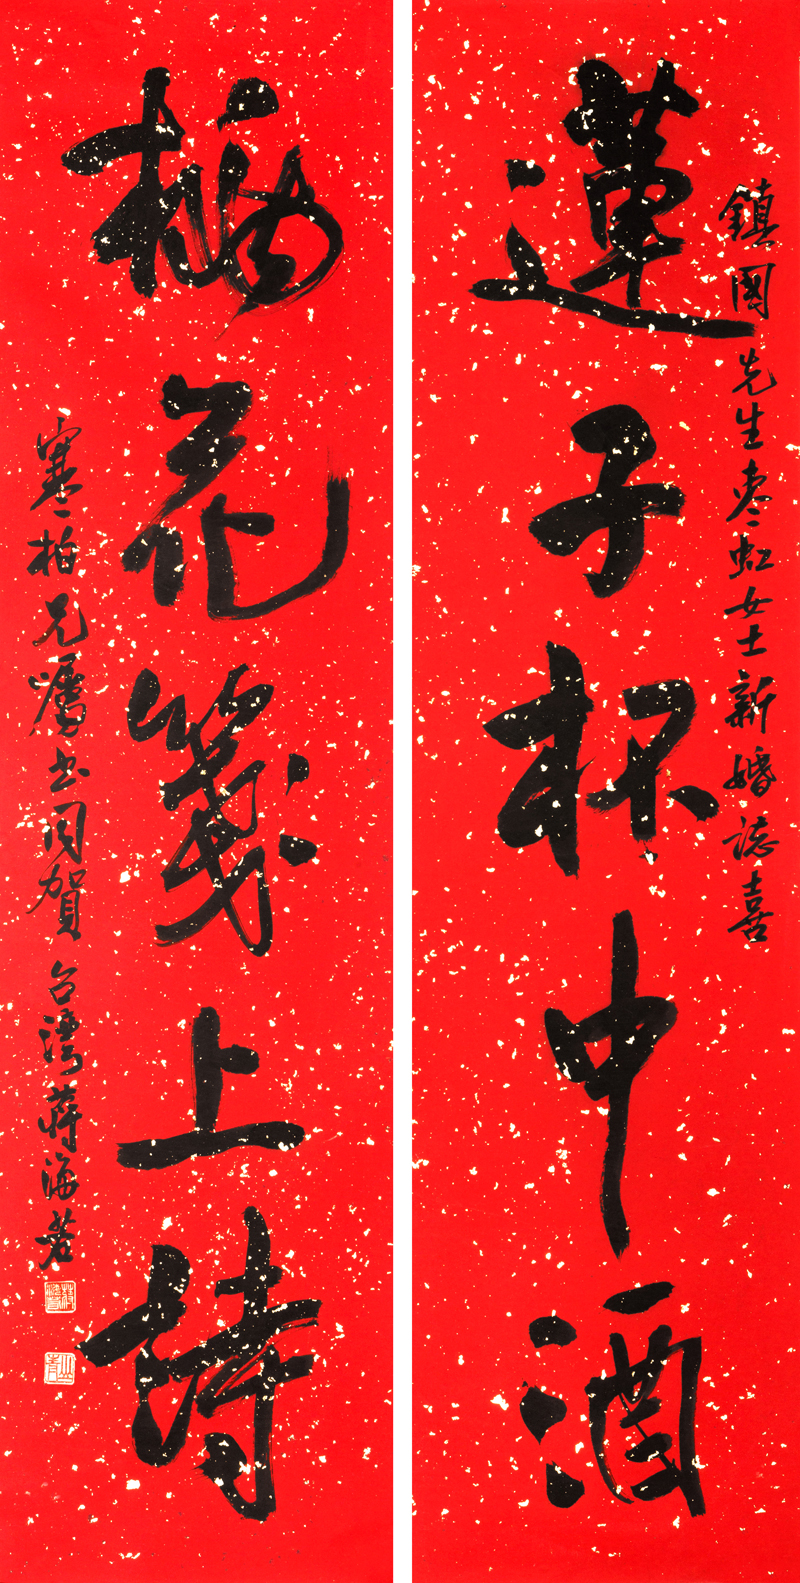 鎮國先生枣虹女士新婚誌喜
蓮子杯中酒
梅花箋上詩
寒柏兄囑書同賀 台灣蔣海若